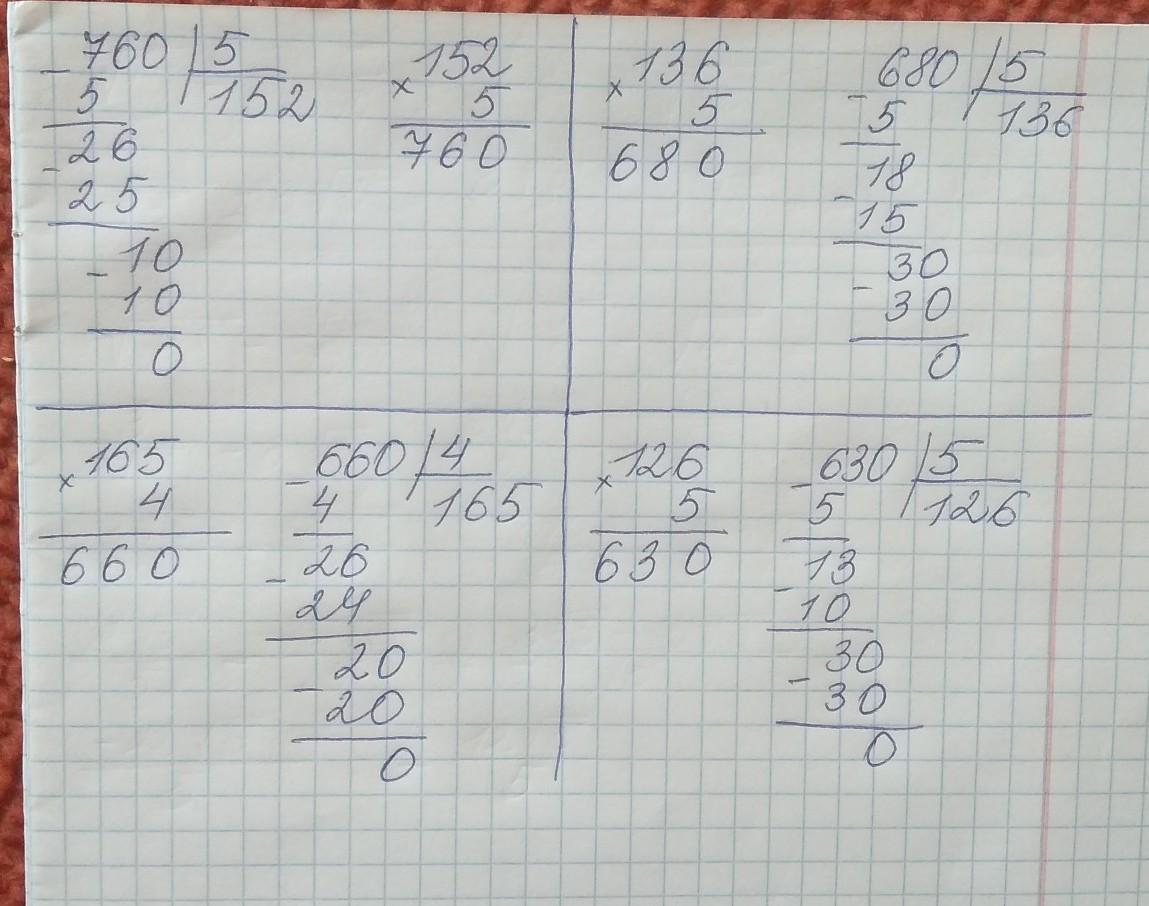 - 760 | 5
5 | 152
- 26
25
- 10
10
0
× 152
5
760
× 136
5
680
- 680 | 5
5 | 136
- 18
15
- 30
30
0
× 165
4
660
- 660 | 4
4 | 165
- 26
24
- 20
20
0
× 126
5
630
- 630 | 5
5 | 126
- 13
10
- 30
30
0